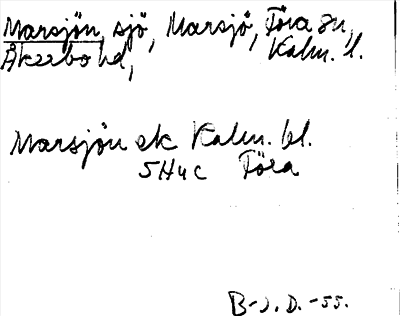 Marsjön, sjö, Marsjö, Föra sn,
Åkerbo hd, Kalm. l.
Marsjön ek Kalm. bl.
5H4c Föra
B-J. D. -55.